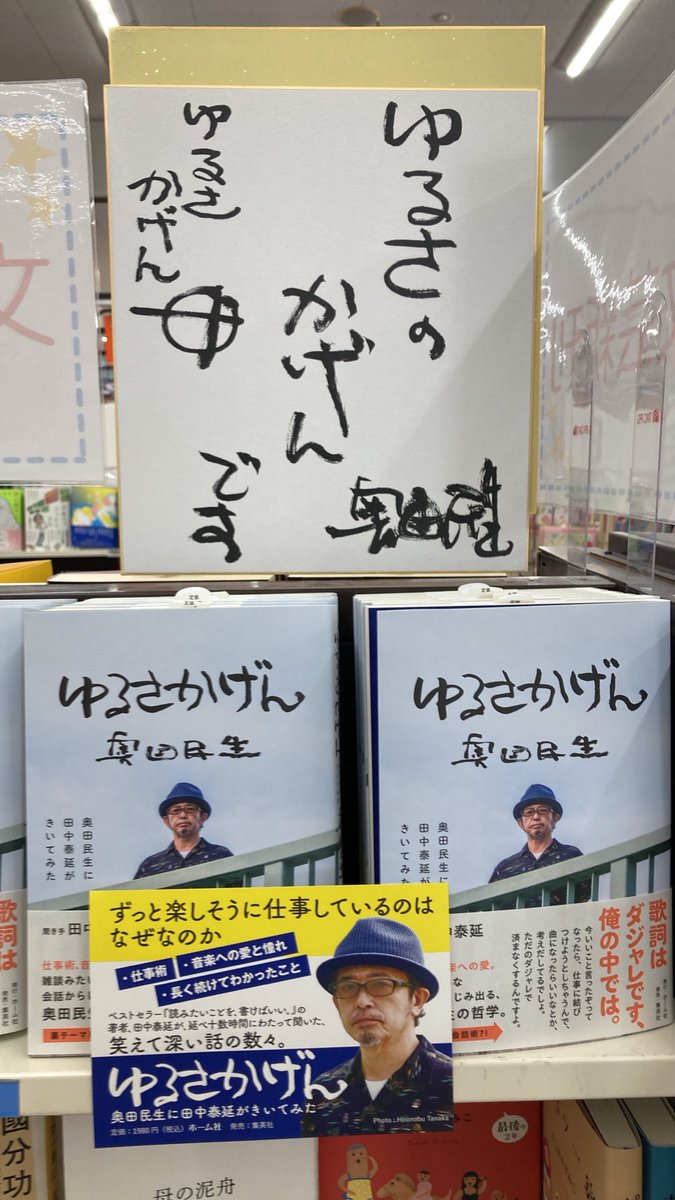 ゆるさの
かげん
奥田民生
ゆるさ
かげん
中
です
文
定価
定価
ゆるさかげん
奥田民生
奥田民生に
田中泰延が
きいてみた
聞き手 田中
仕事術、音
雑談みたい
会話から
奥田民生
裏テーマ
歌詞は
ゆるさかげん
奥田民生
奥田民生に
田中泰延が
きいてみた
中泰延
楽への愛。
な
じみ出る、
生の哲学。
会話術?!
歌詞は
ダジャレです、
俺の中では。
今いいこと言ったぞって
なったら、仕事に結び
つけようとしちゃうんで、
曲になったらいいなとか、
考えだしてるでしょ。
ただのダジャレで
済まなくするんですよ。
発行・ホーム社
発売・集英社
ずっと楽しそうに仕事しているのは
なぜなのか
・仕事術
・音楽への愛と憧れ
・長く続けてわかったこと
ベストセラー『読みたいことを、書けばいい。』の
著者、田中泰延が、延べ十数時間にわたって聞いた、
笑えて深い話の数々。
ゆるさかげん
奥田民生に田中泰延がきいてみた
定価:1980円(税込) ホーム社 発売:集英社
Photo : Hironobu Tanaka
國分功
母の泥舟
最後の
2年